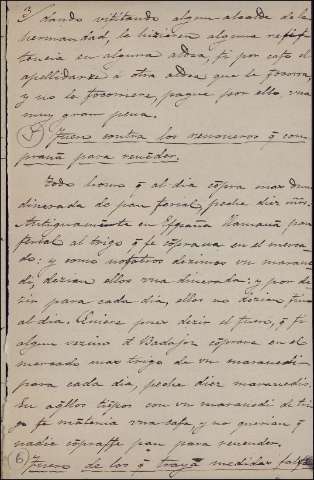 3
Quando visitando algun alcalde de la
hermandad, la hizieren alguna resis-
tencia en alguna aldea, si por caso el
apellidare à otra aldea que le socorra,
y no le socorriere, pague por ello vna
muy gran pena.
5) Fuero contra los renoueros q̃ con-
prauã para reuẽder.
Todo home q̃ al dia cõpra mas duna
dinerada de pan ferial, peche diez mrs.
Antiguamente en España llamauã pan
ferial al trigo q̃ se cõpraua en el merca-
do: y como nosotros dezimos vn maraue-
di, dezian ellos vna dinerada: y por de-
zir para cada dia, ellos no dezian sino
al dia. Quiere pues dezir el fuero, q̃ si
algun vezino d Badajoz cõprare en el
mercado mas trigo de vn marauedi
para cada dia, peche diez marauedis.
En aq̃llos tiẽpos con vn marauedi de tri-
go se mãtenia vna casa, y no querian q̃
nadie cõprasse pan para reuender.
6) Fuero de los q̃ trayã medidas falsas